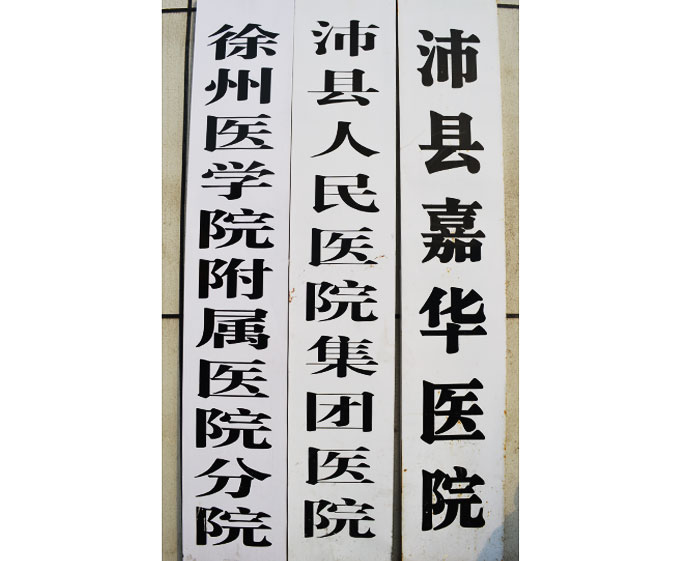 沛县嘉华医院
沛县人民医院集团医院
徐州医学院附属医院分院